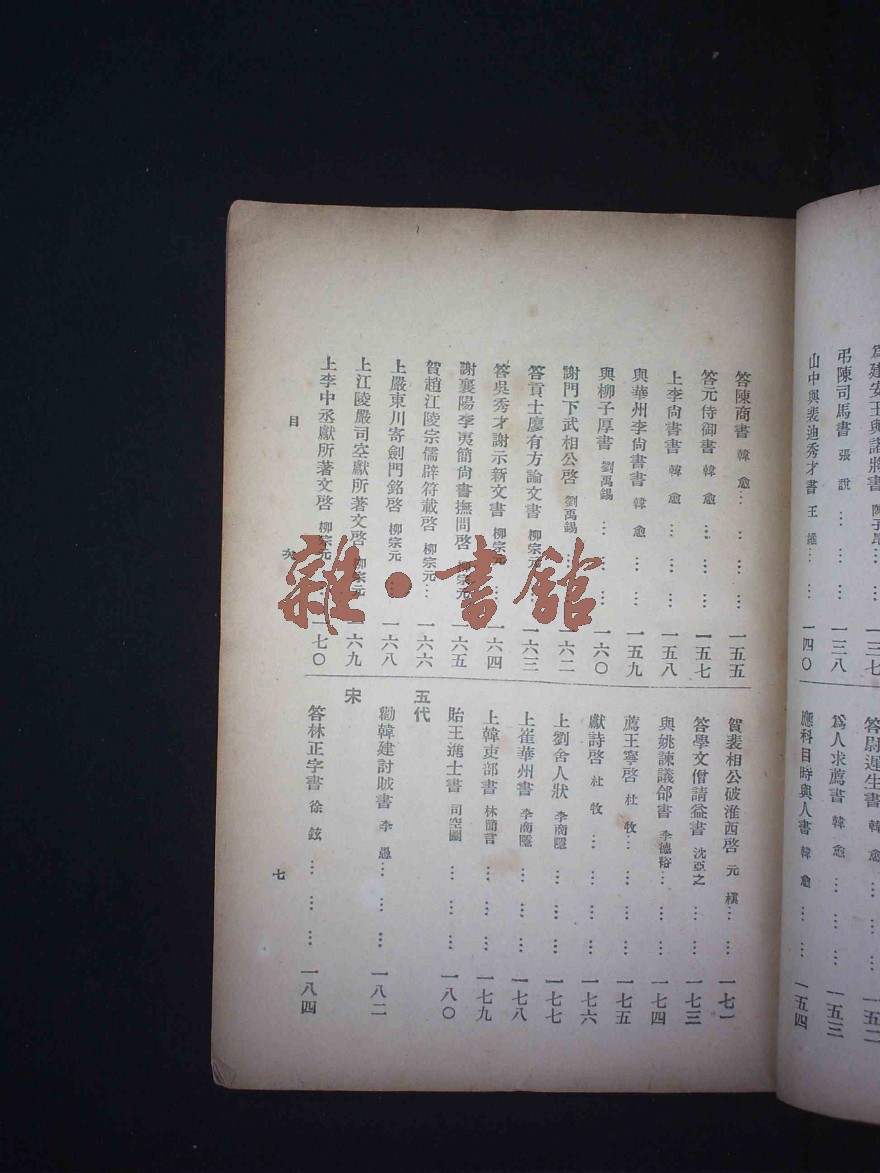 爲建安王與諸將書 陳子昻
弔陳司馬書 張 說 … … … 一三八
山中與裴迪秀才書 王 維 … … 一四〇
答尉遲生書 韓 愈 … … … 一五二
爲人求薦書 韓 愈 … … … 一五三
應科目時與人書 韓 愈 … … 一五四
答陳商書 韓 愈 … … … … 一五五
答元侍御書 韓 愈 … … … 一五七
上李尙書書 韓 愈 … … … 一五八
與華州李尙書書 韓 愈 … … 一五九
與柳子厚書 劉禹錫 … … … 一六〇
謝門下武相公啓 劉禹錫 … 一六二
答貢士廖有方論文書 柳宗元 … 一六三
答吳秀才謝示新文書 柳宗元 … 一六四
謝襄陽李夷簡尙書撫問啓 柳宗元 … 一六五
賀趙江陵宗儒辟符載啓 柳宗元 … 一六六
上嚴東川寄劍門銘啓 柳宗元 … 一六八
上江陵嚴司空獻所著文啓 柳宗元 … 一六九
上李中丞獻所著文啓 柳宗元 … 一七〇
賀裴相公破淮西啓 元 稹 … … 一七一
答學文僧請益書 沈亞之 … … 一七三
與姚諫議郃書 李德裕 … … … 一七四
薦王寧啓 杜 牧 … … … … 一七五
獻詩啓 杜 牧 … … … … 一七六
上劉舍人狀 李商隱 … … … 一七七
上崔華州書 李商隱 … … … 一七八
上韓吏部書 林簡言 … … … 一七九
貽王進士書 司空圖 … … … 一八〇
五代
勸韓建討賊書 李 愚 … … … 一八二
宋
答林正字書 徐 鉉 … … … 一八四
目 次
七
雜·書館